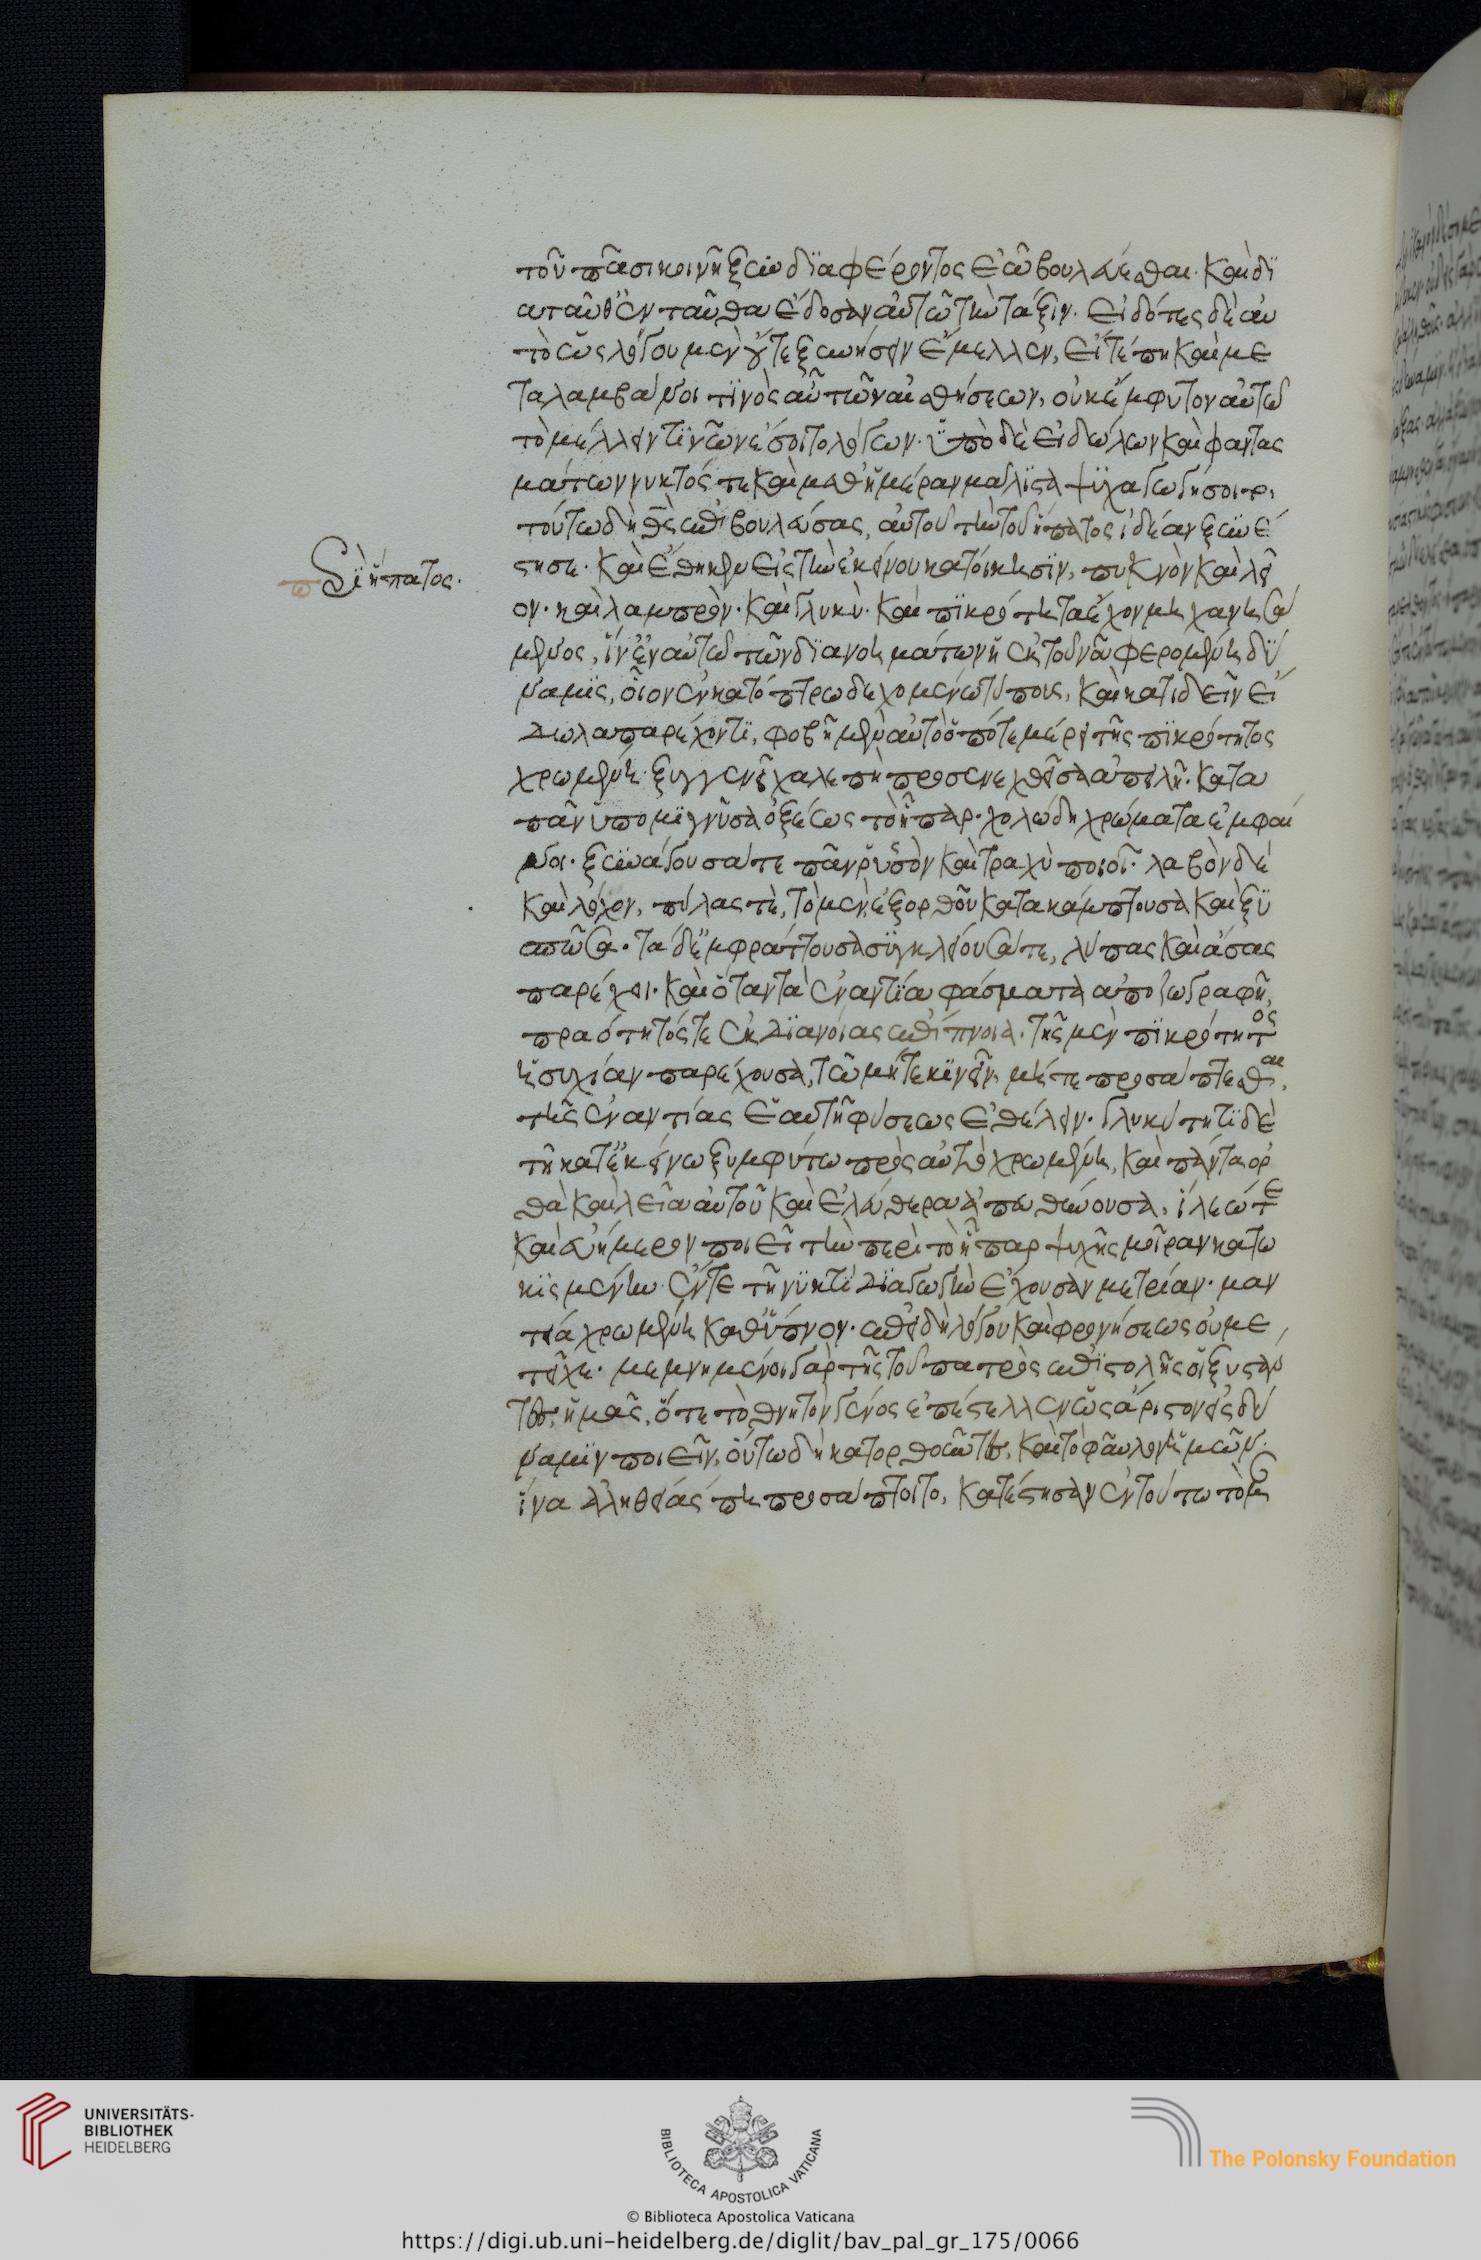 τοῦ πᾶσι κοινῇ ξυμ διαφέροντος ἐῶ βουλεύεσθαι. καὶ δι
α ταῦθ' ἐνταῦθα ἔδοσαν αὐτῶ τὴν τάξιν. εἰδότες δὲ αὐ
τὸ ὡς λόγου μὲν οὔτε ξυνήσειν ἔμελλεν, εἴτέ πη καὶ με
ταλαμβάνοι τινὸς αὖ τῶν αἰσθήσεων, οὐκ ἔμφυτον αὐτῶ
τὸ μέλειν τινῶν ἔσοιτο λόγων. ὑπὸ δὲ εἰδώλων καὶ φαντασ
μάτων νυκτός τε καὶ μεθ' ἡμέραν μάλιστα ψυχαγωγήσοιτο.
τούτω δὴ θεὸς ἐπιβουλεύσας, αὐτοῦ τὴν τοῦ ἥπατος ἰδέαν ξυνέ
στησε. καὶ ἔθηκεν εἰς τὴν ἐκείνου κατοίκησιν, πυκνὸν καὶ λεῖ
Περὶ ἥπατος.
ον. καὶ λαμπρὸν. καὶ γλυκὺ. καὶ πικρότητα ἔχον μηχανησά
μενος, ἵν' ἐν αὐτῶ τῶν διανοημάτων ἡ ἐκ τοῦ νοῦ φερομένη δύ
ναμις, οἷον ἐν κατόπτρω δεχομένω τύπους, καὶ κατιδεῖν εἴ
δωλα παρέχοντι, φοβῇ μὲν αὐτὸ ὁπότε μέρει τῆς πικρότητος
χρωμένη ξυγγενεῖ χαλεπὴ προσενεχθεῖσα ἀπειλῇ. κατα
πᾶν ὑπομιγνῦσα ὀξέως τὸ ἧπαρ. χολώδη χρώματα ἐμφαί
νοι. ξυνάγουσά τε πᾶν ῥυσὸν καὶ τραχὺ ποιοῖ. λαβὸν δὲ
καὶ λόχον, πύλας τε, τὸ μὲν ἐξ ὀρθοῦ κατακάμπτουσα καὶ ξυ
σπῶσα. τὰ δὲ ἐμφράττουσα συγκλείουσά τε, λύπας καὶ ἄσας
παρέχει. καὶ ὅταν τὰ ἐναντία φάσματα ἀποζωγραφῇ,
πραότητός τε ἐκ διανοίας ἐπίπνοια. τῆς μὲν πικρότητος
ἡσυχίαν παρέχουσα, τῶ μήτε κινεῖν μήτε προσάπτεσθαι
τῆς ἐναντίας ἑαυτῇ φύσεως ἐθέλειν. γλυκύτητι δὲ
τῇ κατ' ἐκείνω ξυμφύτω πρὸς αὐτὸ χρωμένη, καὶ πάντα ὀρ
θὰ καὶ λεῖα αὐτοῦ καὶ ἐλεύθερα ἀπευθύνουσα, ἵλεών τε
καὶ εὐήμερον ποιεῖ τὴν περὶ τὸ ἧπαρ ψυχῆς μοῖραν κατω
κισμένην. ἔν τε τῇ νυκτὶ διαγωγὴν ἔχουσαν μετρίαν. μαν
τεία χρωμένη καθ' ὕπνον. ἐπειδὴ λόγου καὶ φρονήσεως οὐ με
τεῖχε. μεμνημένοι γὰρ τῆς τοῦ πατρὸς ἐπιστολῆς οἱ ξυστάν
τες ἡμᾶς, ὅτε τὸ θνητὸν γένος ἐπέστελλεν ὡς ἄριστον εἰς δύ
ναμιν ποιεῖν, οὕτω δὴ κατορθοῦντες, καὶ τὸ φαῦλον ἡμῶν.
ἵνα ἀληθείας πη προσάπτοιτο, κατέστησαν ἐν τούτω τὸ μ
UNIVERSITÄTS-
BIBLIOTHEK
HEIDELBERG
BIBLIOTECA APOSTOLICA VATICANA
The Polonsky Foundation
© Biblioteca Apostolica Vaticana
https://digi.ub.uni-heidelberg.de/diglit/bav_pal_gr_175/0066